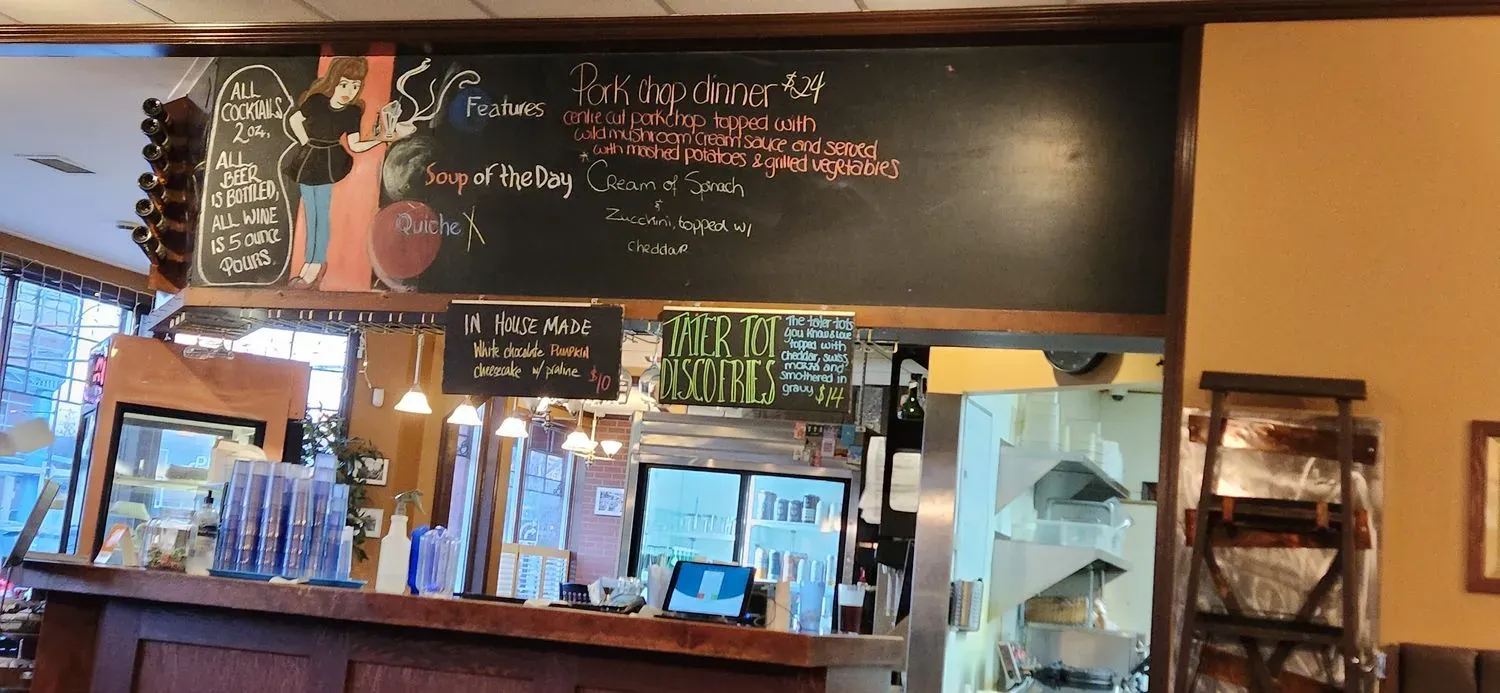 ALL
COCKTAILS
2 oz.,
ALL
BEER
IS BOTTLED,
ALL WINE
IS 5 ounce
POURS.
Features
Pork chop dinner $24
centre cut porkchop topped with
wild mushroom cream sauce and served
with mashed potatoes & grilled vegetables
Soup of the Day
Cream of Spinach
&
Zucchini, topped w/
cheddar
Quiche X
IN HOUSE MADE
White chocolate Pumpkin
cheesecake w/ praline $10
TATER TOT
DISCO FRIES
The tater tots
you know & love
topped with
cheddar, swiss,
mozza and
smothered in
gravy $14